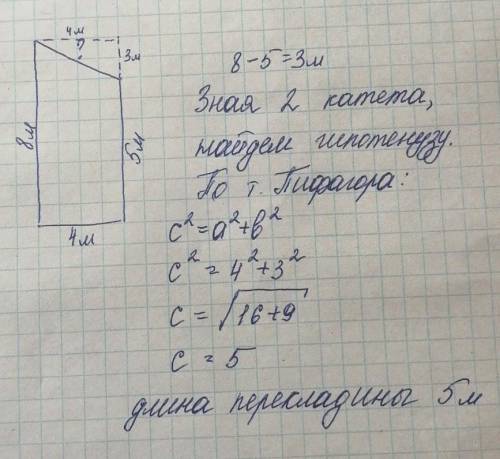 4м
?
3м
8м
5м
4м
8-5=3м
Зная 2 катета,
найдем гипотенузу.
По т. Пифагора:
c²=a²+b²
c²=4²+3²
c = √16+9
c = 5
длина перекладины 5м